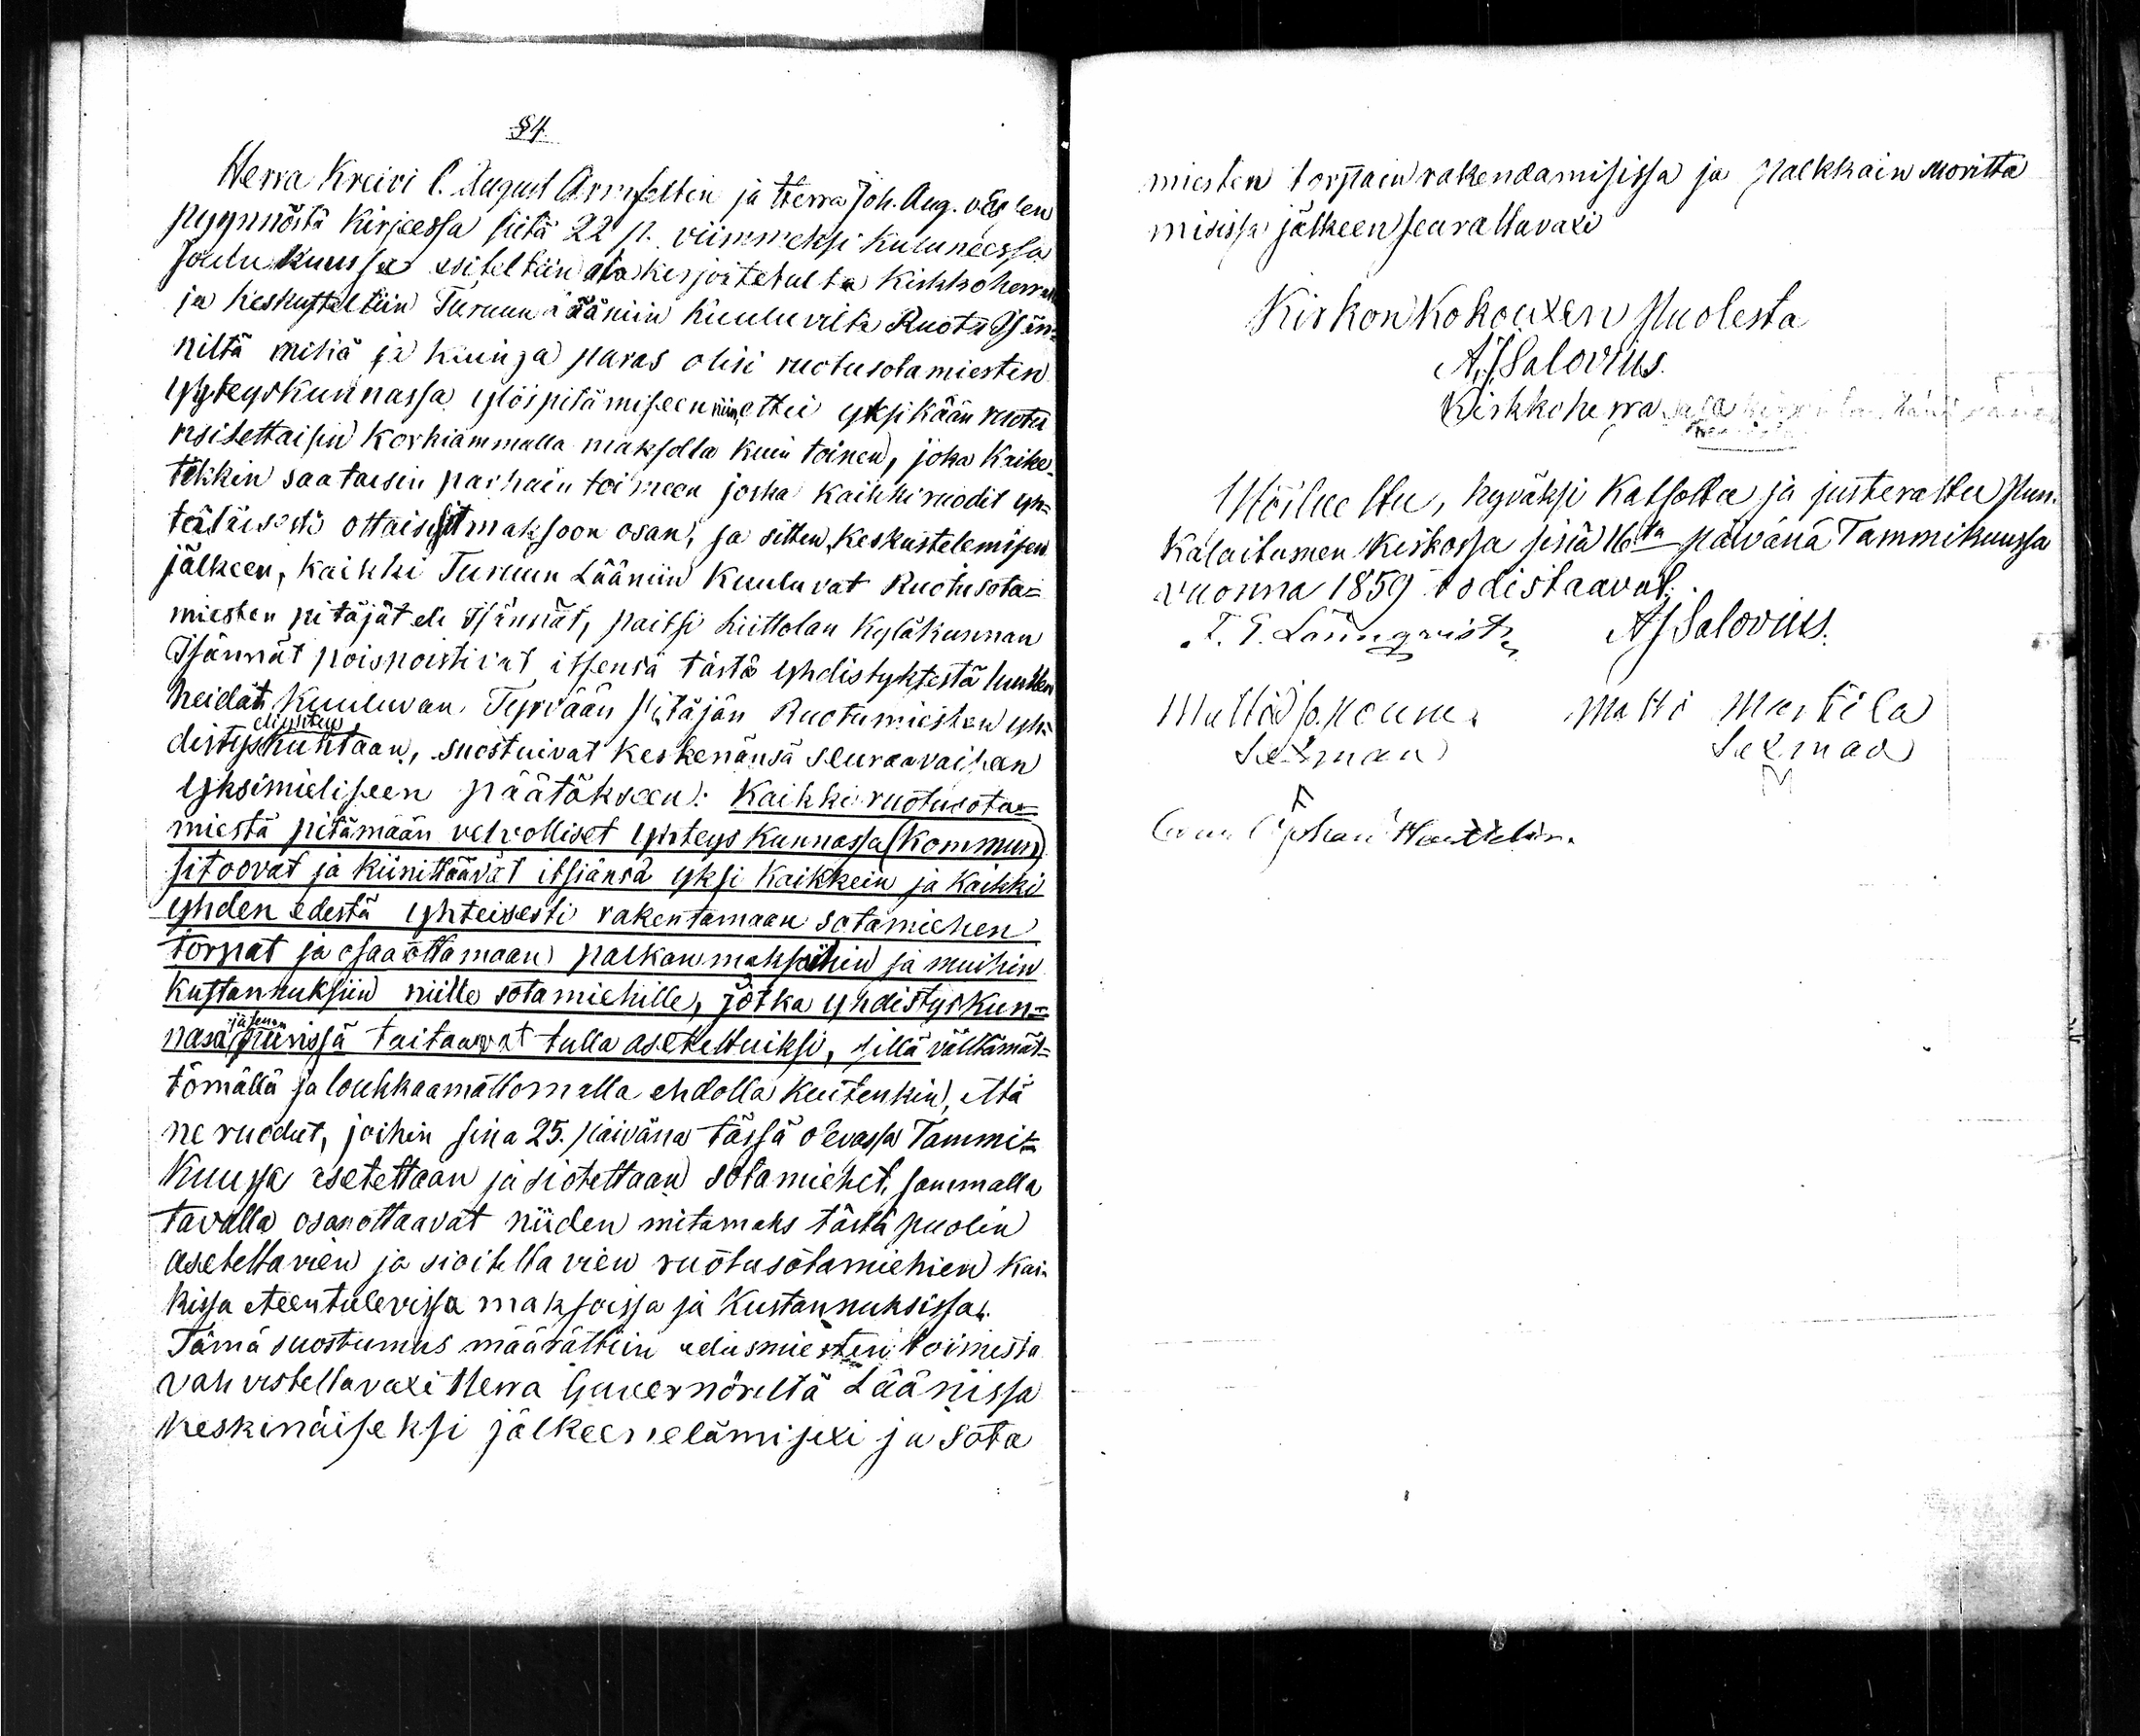 § 4.
Herra Kreivi C. August Armfeltin ja Herra Joh. Aug. v. Essen
pyynnöstä kirjeessä siitä 22 p. viimmeksi kuluneessa
Joulu kuussa esiteltiin ala kirjoitetulta Kirkkoherralta
ja keskusteltiin Turuun lääniin kuuluvilta Ruotu Isän-
niltä mikä ja kuinga paras olisi ruotusotamiesten
yhteyskunnassa ylöspitämiseen niin, ettei yksikään ruotu
rasitettaisiin korkiammalla maksolla kuin toinen, joka kaike-
tikkin saataisin parhain toimeen joska kaikki ruodit yh-
teisesti ottaisit maksoon osan, ja sitten keskustelemisen
jälkeen, kaikki Turuun Lääniin kuuluvat Ruotusota-
miesten pitäjät eli Isännät, paitsi Liittolan kyläkunnan
Isännät poispoistivat itsensä tästä yhdistyksestä
heidän kuuluvan Tyrvään pitäjän Ruotumiesten yh-
distyskuntaan, suostuivat keskenänsä seuraavaiseen
yksimieliseen päätökseen: Kaikki ruotusota-
miestä pitämään velvolliset yhteys kunnassa (Kommun)
sitoovat ja kiinittäävät itsiänsä yksi kaikkein ja kaikki
yhden edestä yhteisesti rakentamaan sotamiehen
torpat ja osaaottamaan palkan maksoihin ja muihin
kustannuksiin niille sotamiehille, jotka yhdistyskun-
nasa taitaavat tulla asetettuiksi, sillä välttämät-
tömällä ja loukkaamattomalla ehdolla kuitenkin, että
ne ruodut, joihin sina 25. päivänä tässä olevassa Tammi-
kuussa asetettaan ja siotettaan sotamiehet, sammalla
tavalla osanottaavat niiden mitamaks tästä puolin
asetettavien ja sioitettavien ruotusotamiehien kai-
kissa eteentulevissa maksoissa ja kustannuksissa.
Tämä suostumus määrättiin edusmiesten toimesta
vahvistettavaxi Herra Guvernöriltä Läänissä
keskinäiseksi jälkeenelämisexi ja sota
miesten torpain rakendamisissa ja palkkain Moritta
misissa jälkeen seurattavaxi
Kirkon kokouxen puolesta
A. J. Salovius.
Kirkkoherra
Ylöslu ettu, hyväksi katsottu ja justerattu Pun-
kalaitumen kirkossa sinä 16ta päivänä Tammikuussa
vuonna 1859 todistaavat:
T. G. Lönnqvist AJ Salovius.
Matti Marttila
Sexman Sexmad
M
Johan Hartelin.